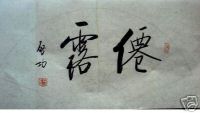 僊露
啟功